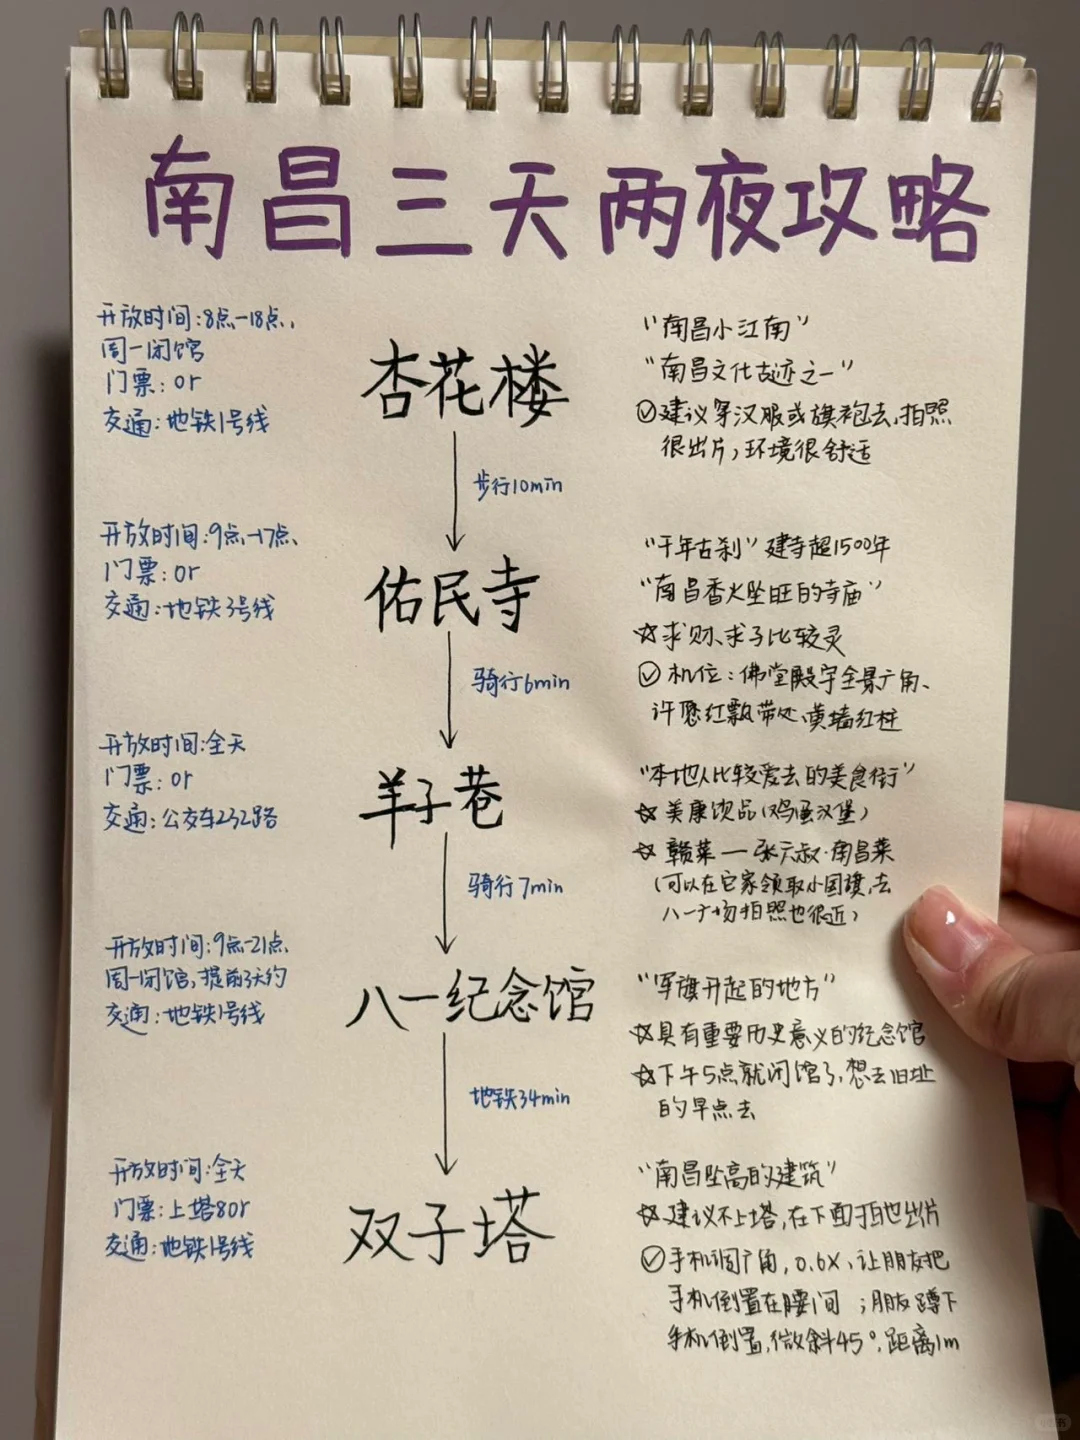 南昌三天两夜攻略
开放时间:8点-18点,
周一闭馆
门票:0r
交通:地铁1号线
杏花楼
"南昌小江南"
"南昌文化古迹之一"
建议穿汉服或旗袍去,拍照
很出片,环境很舒适
步行10min
开放时间:9点-17点
门票:0r
交通:地铁3号线
佑民寺
"千年古刹"建寺超1500年
"南昌香火坠旺的寺庙"
☆求财、求子比较灵
机位:佛堂殿宇全景广角、
许愿红飘带处、黄墙红柱
骑行6min
开放时间:全天
门票:0r
交通:公交车232路
羊子巷
"本地人比较爱去的美食街"
☆美康饮品(鸡蛋汉堡)
☆赣菜—张六叔·南昌菜
(可以在它家领取小国旗,去
八一广场拍照也很近)
骑行7min
开放时间:9点-21点
周一闭馆,提前3天约
交通:地铁1号线
八一纪念馆
"军旗升起的地方"
☆具有重要历史意义的纪念馆
☆下午5点就闭馆了,想去旧址
的早点去
地铁34min
开放时间:全天
门票:上塔80r
交通:地铁1号线
双子塔
"南昌坠高的建筑"
☆建议不上塔,在下面于地出片
手机调广角,0.6X,让朋友把
手机倒置在腰间;朋友蹲下
手机倒置,微斜45°,距离1m